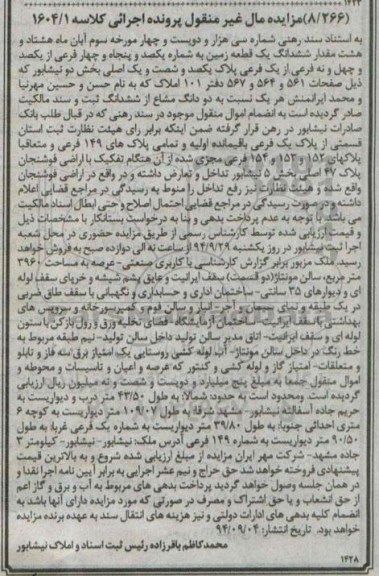 (۸/۲۶۶)مزایده مال غیر منقول پرونده اجرائی کلاسه ۱۶۰۴/۱
به استناد سند رهنی شماره سی هزار و دویست و چهار مورخه سوم آبان ماه هشتاد و
هشت مقدار ششدانگ یک قطعه زمین به شماره یکصد و پنجاه و چهار فرعی از یکصد
و چهل و نه فرعی از یک فرعی پلاک یکصد و شصت و یک اصلی بخش دو نیشابور که
ذیل صفحات ۵۶۱ و ۵۶۴ و ۵۶۷ دفتر ۱۰۱ املاک که به نام حسن و حسین مهرنیا
و محمد ایرانمنش هر یک نسبت به دو دانگ مشاع از ششدانگ ثبت و سند مالکیت
صادر گردیده است به انضمام اموال منقول موجود در سند رهنی که در قبال طلب بانک
صادرات نیشابور در رهن قرار گرفته ضمن اینکه برابر رای هیئت نظارت ثبت استان
قسمتی از پلاک یک فرعی باقیمانده اولیه و تمامی پلاک های ۱۴۹ فرعی و متعاقبا
پلاکهای ۱۵۲ و ۱۵۳ و ۱۵۴ فرعی مجزی شده از آن هنگام تفکیک با اراضی فوشنجان
پلاک ۴۷ اصلی بخش ۵ نیشابور تداخل و تعارض داشته و در واقع در اراضی فوشنجان
واقع شده و هیئت نظارت نیز رفع تداخل را منوط به رسیدگی در مراجع قضایی اعلام
داشته و در صورت رسیدگی در مراجع قضایی احتمال اصلاح و حتی ابطال اسناد مالکیت
می باشد. با توجه به عدم پرداخت بدهی و بنا به درخواست بستانکار با مشخصات ذیل
و قیمت ارزیابی شده توسط کارشناس رسمی از طریق مزایده حضوری در محل شعبه
اجرا ثبت نیشابور در روز یکشنبه ۹۴/۹/۲۹ از ساعت نه الی دوازده صبح به فروش خواهد
رسید. ملک مزبور برابر گزارش کارشناسی با کاربری صنعتی- عرصه به مساحت ۳۹۶۰
متر مربع، سالن مونتاژ(دو قسمت) سقف ایرانیت و عایق پشم شیشه و خرپای سقف لوله
ای و دیوارهای ۳۵ سانتی- ساختمان اداری و حسابداری و نگهبانی با سقف طاق ضربی
در یک طبقه و نمای سیمان و آجر- انبار و سالن فوم، کمپرسورخانه و سرویس های
بهداشتی با سقف ایرانیت- ساختمان آزمایشگاه- فضای تخلیه ورق و رول بازکن با ستون
لوله ای و سقف ایرانیت- اتاق مدیر سالن تولید داخل سالن تولید- نیم طبقه مربوط به
خط رنگ در داخل سالن مونتاژ- آب لوله کشی روستایی یک امتیاز برق سه فاز و تابلو
و متعلقات- امتیاز گاز و لوله کشی و کنتور که عرصه و اعیان و تاسیسات و محوطه و
اموال منقول جمعا به مبلغ پنج میلیارد و دویست و شصت و نه میلیون ریال ارزیابی
گردیده است. ومحدود است به حدود: شمالا: به طول ۴۳/۵۰ متر درب و دیواریست به
حریم جاده آسفالته نیشابور- مشهد شرقا: به طول ۱۰۹/۰۷ متر دیواریست به کوچه ۶
متری احداثی جنوبا: به طول ۳۹/۸۰ متر دیواریست به شماره یک فرعی غربا: به طول
۹۰/۵۰ متر دیواریست به شماره ۱۴۹ فرعی آدرس ملک: نیشابور- نیشابور- کیلومتر ۳
جاده مشهد- شرکت مهر ایران مزایده از مبلغ ارزیابی شده شروع و به بالاترین قیمت
پیشنهادی فروخته خواهد شد حق حراج و نیم عشر اجرایی به برابر آیین نامه اجرا نقدا و
در همان جلسه وصول خواهد گردید پرداخت بدهی های مربوط به آب و برق و گاز اعم
از حق انشعاب و یا حق اشتراک و مصرف در صورتی که مورد مزایده دارای آنها باشد به
انضمام کلیه بدهی های ادارات دولتی و نیز هزینه های انتقال سند به عهده برنده مزایده
خواهد بود. تاریخ انتشار: ۹۴/۰۹/۰۴
محمدکاظم باقرزاده رئیس ثبت اسناد و املاک نیشابور
۱۴۲۸